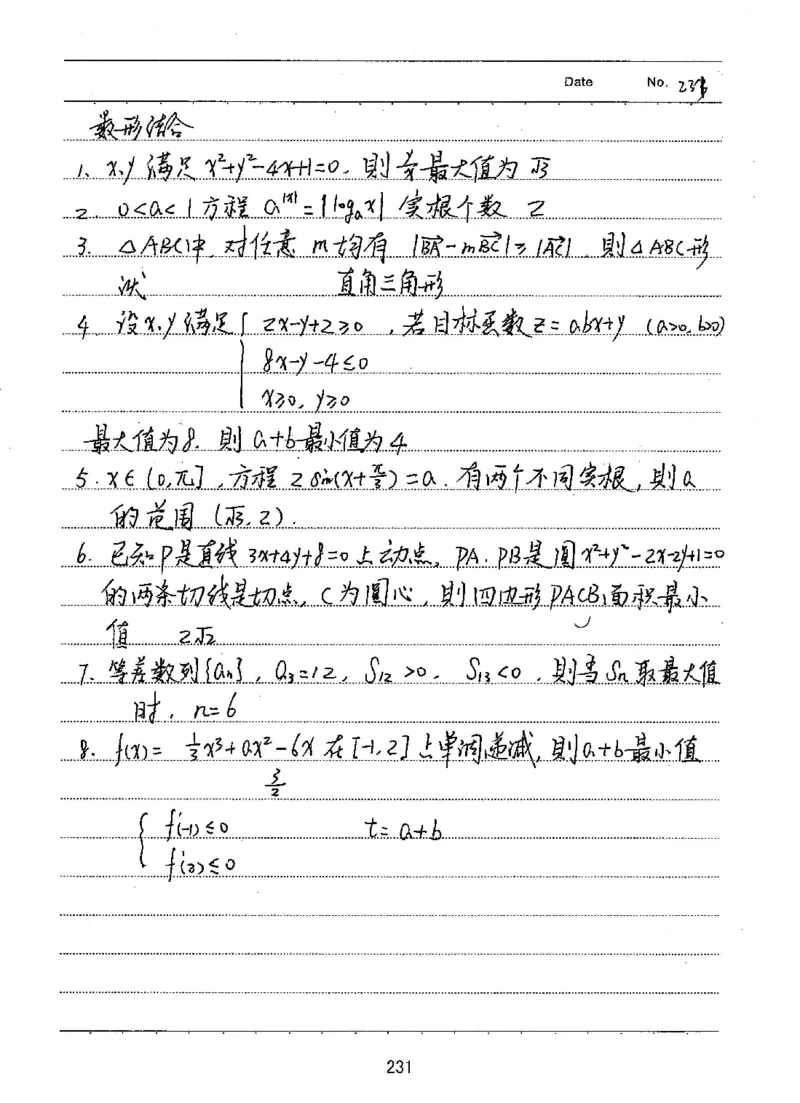 Date No. 231
数形结合
1. x,y 满足 x²+y²-4x+1=0, 则 y/x 最大值为 √3
2. 0<a<1 方程 a^|x| = |logₐx| 实根个数 2
3. △ABC中, 对任意 m 均有 |BA→ - mBC→| ≥ |AC→|, 则△ABC形
状 直角三角形
4. 设x,y满足{ 2x-y+2≥0 , 若目标函数z=abx+y (a>0, b>0)
8x-y-4≤0
x≥0, y≥0
最大值为8. 则 a+b最小值为4
5. x∈[0,π], 方程 2sin(x+π/3)=a. 有两个不同实根, 则a
的范围 (√3, 2).
6. 已知P是直线 3x+4y+8=0上动点, PA.PB是圆x²+y²-2x-2y+1=0
的两条切线是切点, C为圆心, 则四边形PACB面积最小
值 2√2
7. 等差数列{aₙ}, a₃=12, S₁₂>0, S₁₃<0, 则当Sₙ取最大值
时, n=6
8. f(x)= 1/3x³+ax²-6x 在[-1,2]上单调递减, 则a+b最小值
3/2
{ f'(-1)≤0 t=a+b
f'(2)≤0
231